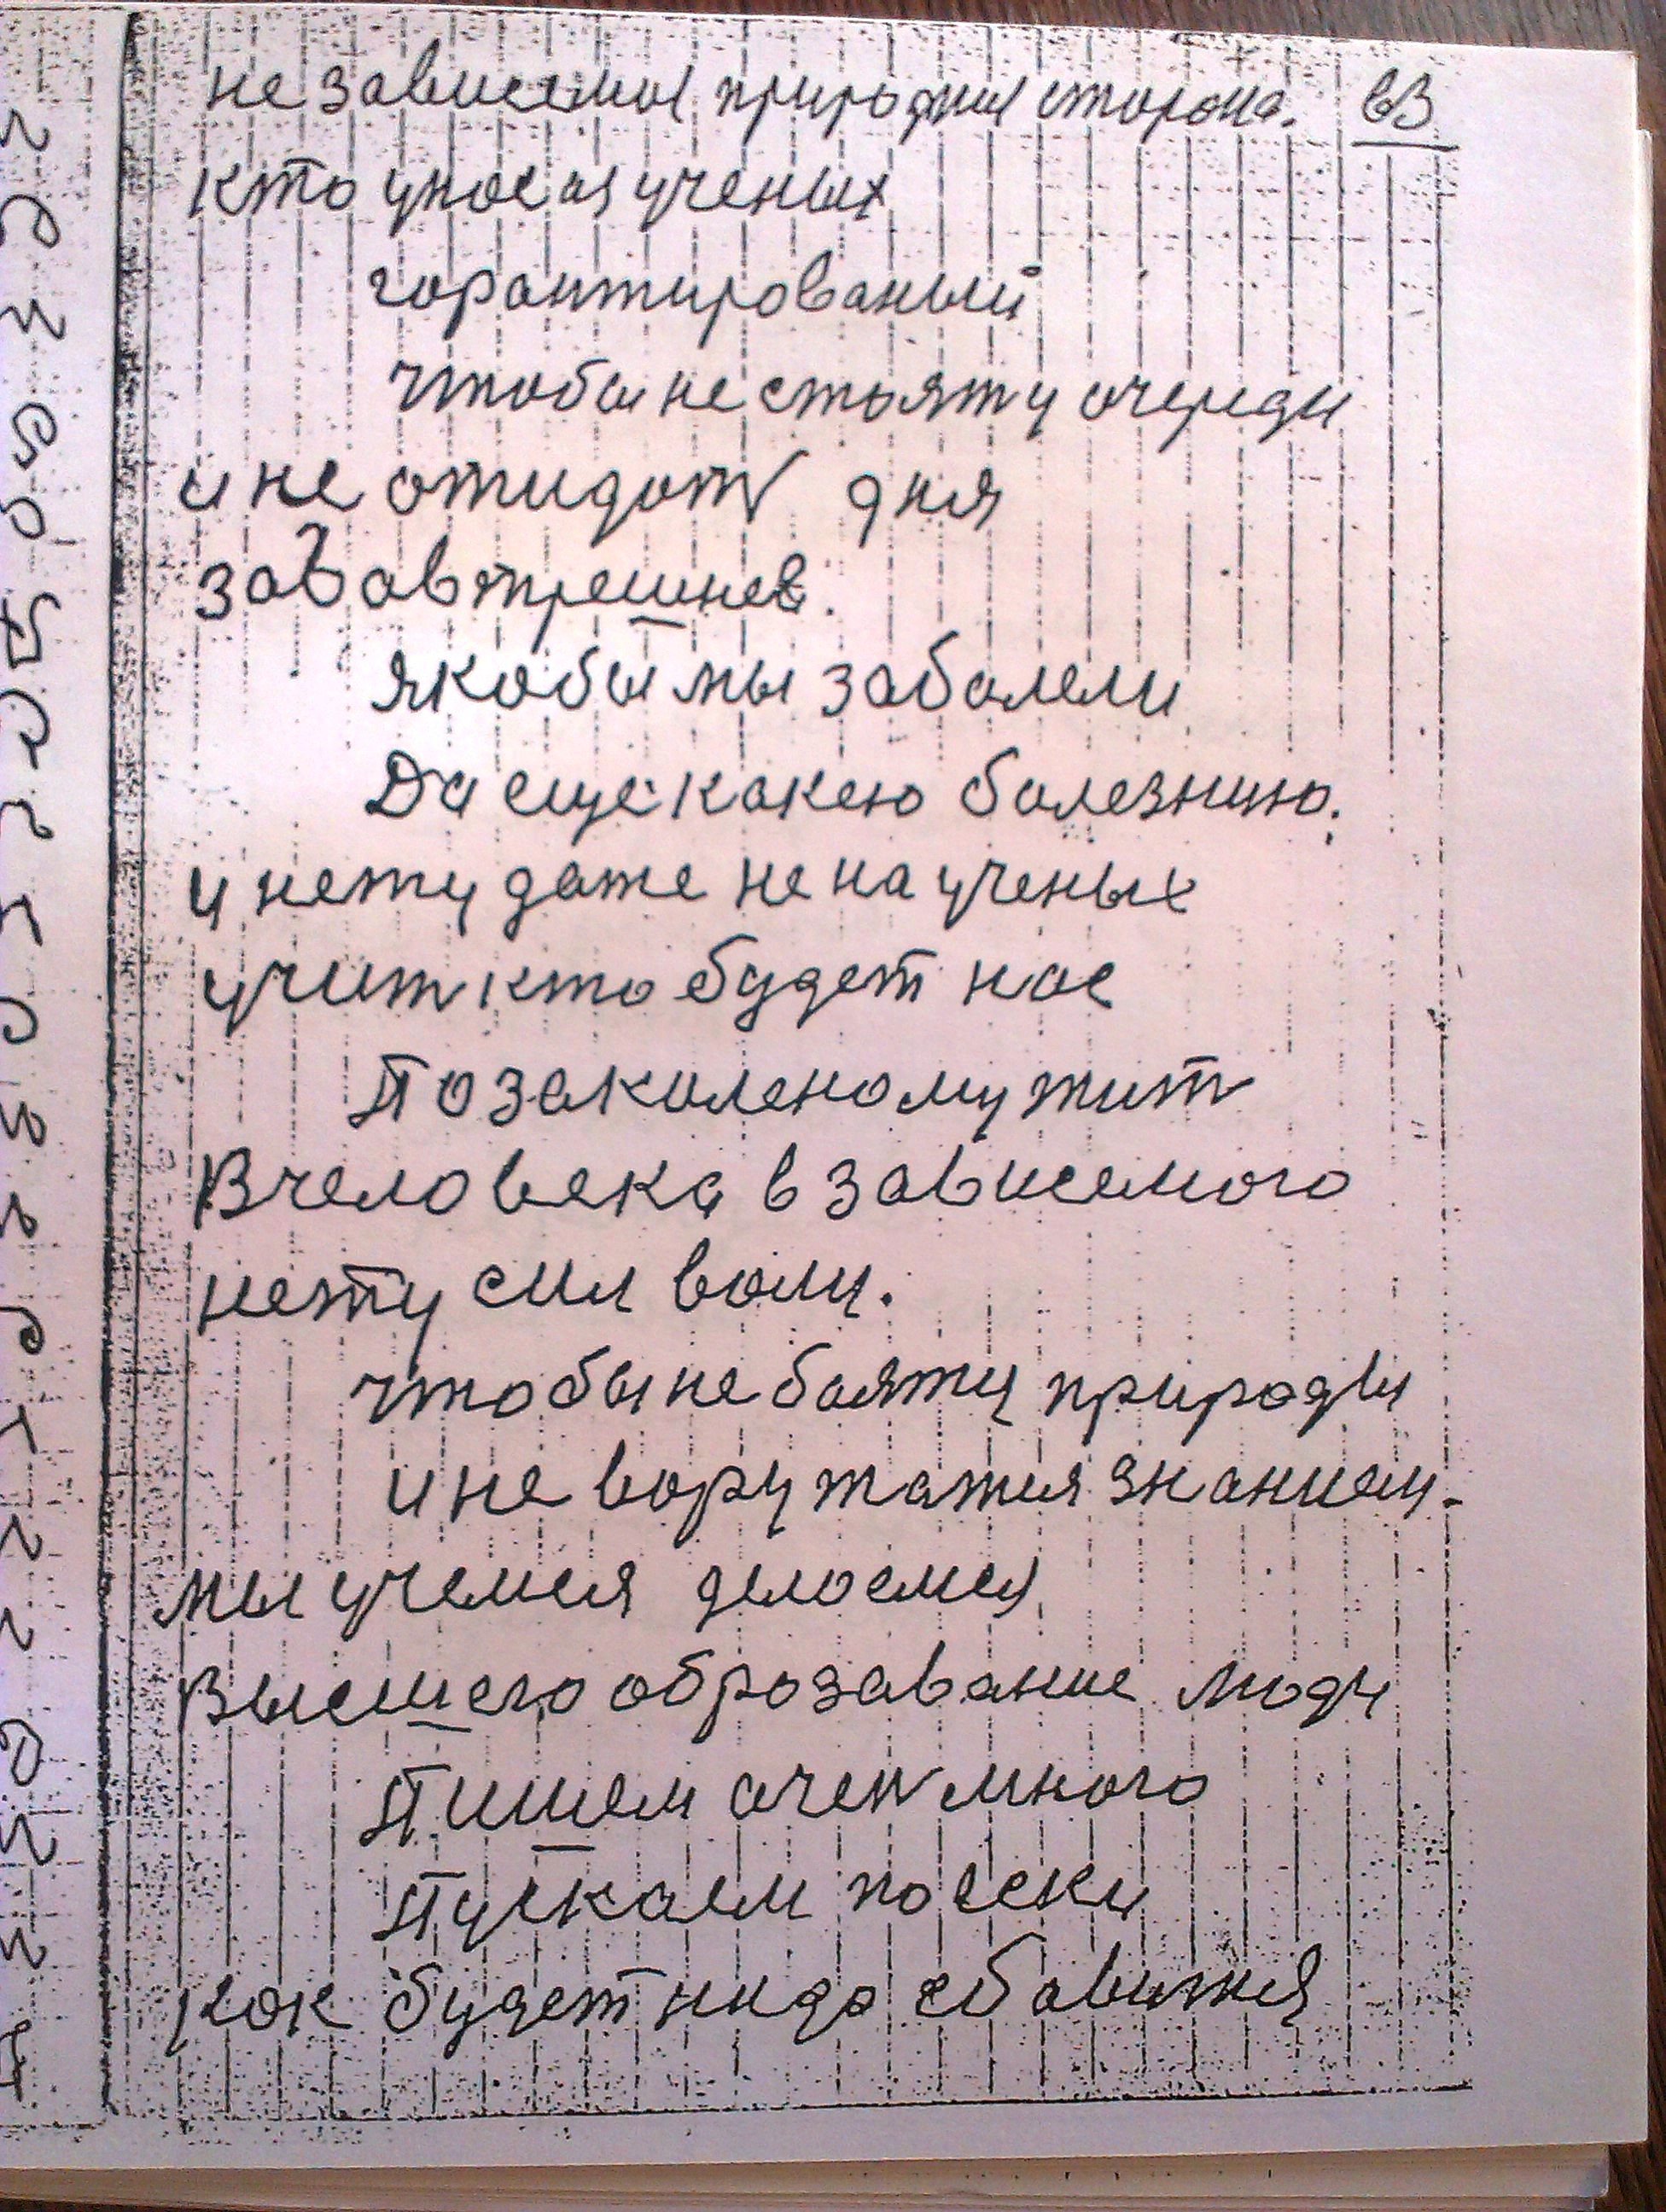 не зависемоя природния сторона. 63
кто у нас из ученых
горантированый
чтобы не стоят у очереди
и не ожидат дня
зававтрешнев.
якобы мы заболели
Да еще какею болезнию.
и нету даже не на ученых
учит кто будет нас
По закаленому жит
В человека в зависемого
нету сил воли.
чтобы не боятц природы
и не воружатия знанием.
мы учемся делаемся
Высшего образавание люди
Пишем очен много
Пускаем поески
как будет нида сбавится